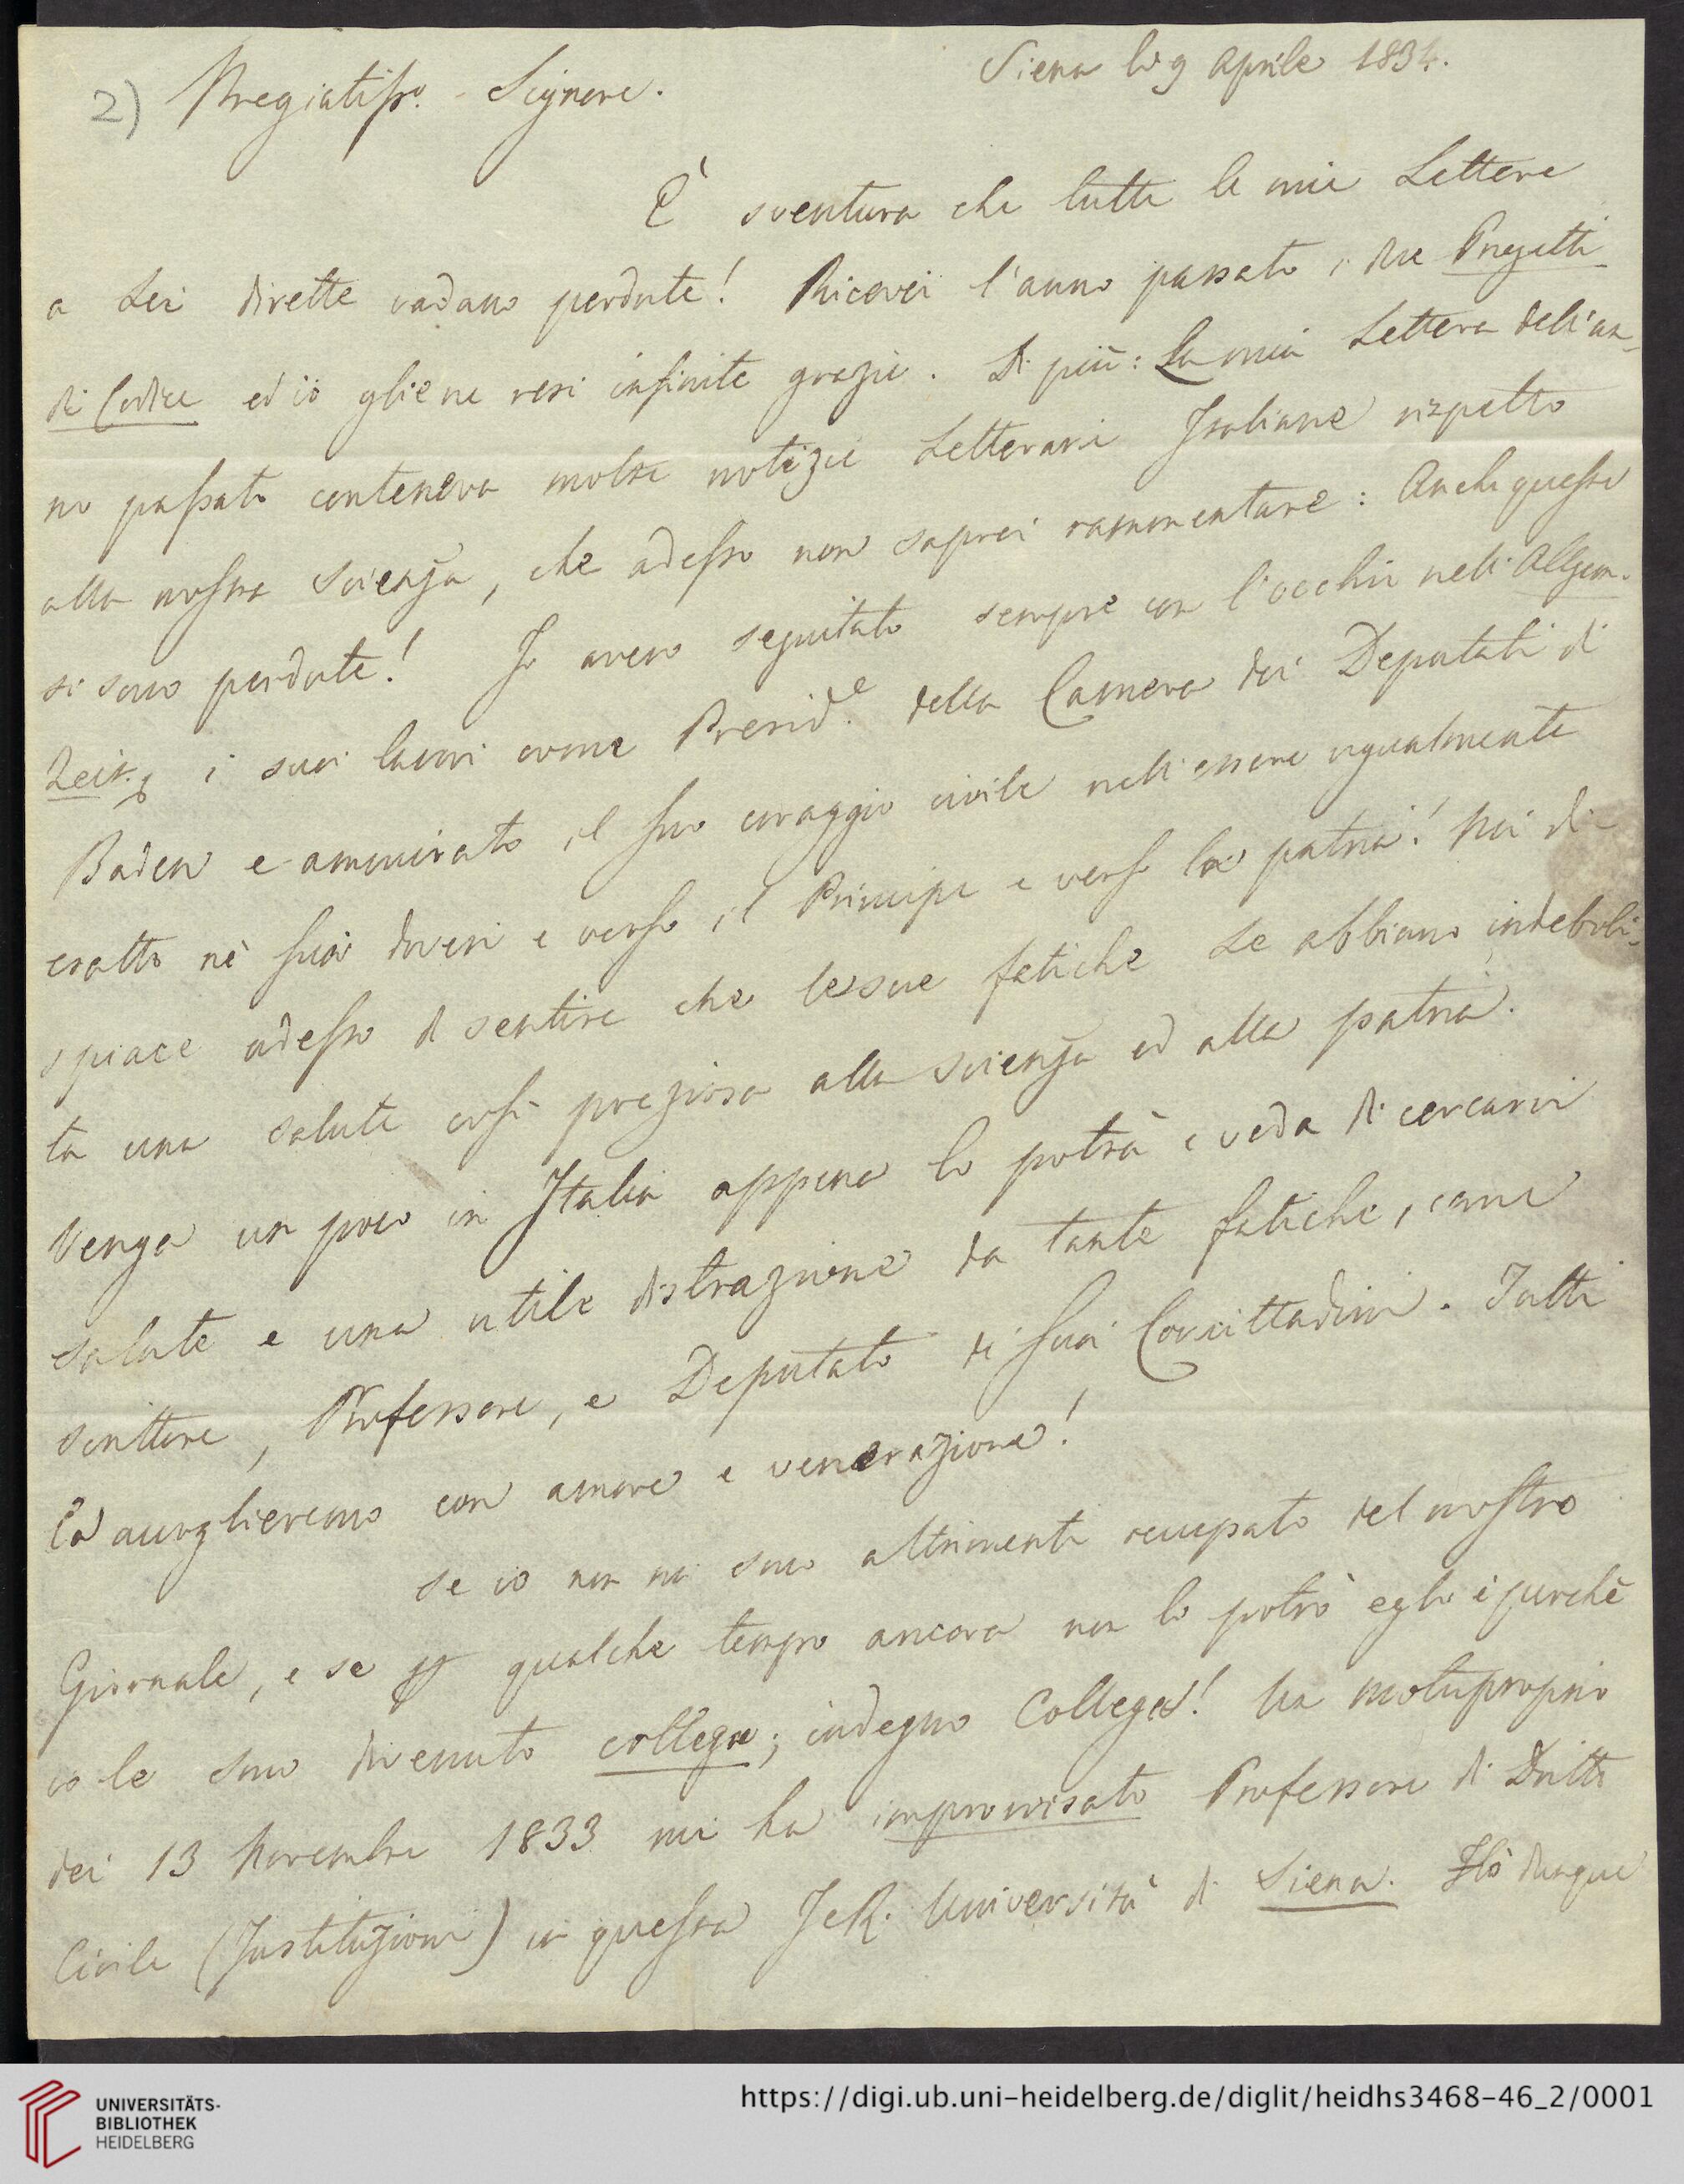 Siena li 9 Aprile 1834.
2) Pregiatisso. Signore.
È sventura che tutte le mie Lettere
a Lei dirette vadano perdute! Ricevei l'anno passato i due Progetti
di Codice ed io gliene resi infinite grazie. Di più: La mia Lettera dell'an-
no passato conteneva molte notizie Letterarie Italiane rispetto
alla nostra Scienza, che adesso non saprei rammentare: Anche queste
si sono perdute! Io avevo seguitato sempre con l'occhio nell'Allgem.
Zeit. i suoi lavori come Preside. della Camera dei Deputati di
Baden e ammirato il suo coraggio civile nell'essere ugualmente
esatto nè suoi doveri e verso il Principe e verso la patria! Mi di-
spiace adesso di sentire che le sue fatiche Le abbiano indeboli-
ta una salute così preziosa alla scienza ed alla patria.
Venga un poco in Italia appena lo potrà e veda di cercarvi
salute e una utile distrazione da tante fatiche, come
scrittore, Professore, e Deputato di suoi Concittadini. Tutti
La accoglieremo con amore e venerazione!
Se io non mi sono altrimenti occupato del nostro
Giornale, e se per qualche tempo ancora non lo potrò egli è perchè
io le sono divenuto collega; indegno Collega! Un motuproprio
dei 13 Novembre 1833 mi ha improvvisato Professore di Dritto
Civile (Instituzioni) in questa I e R. Università di Siena. Hò dunque
UNIVERSITÄTS-
BIBLIOTHEK
HEIDELBERG
https://digi.ub.uni-heidelberg.de/diglit/heidhs3468-46_2/0001